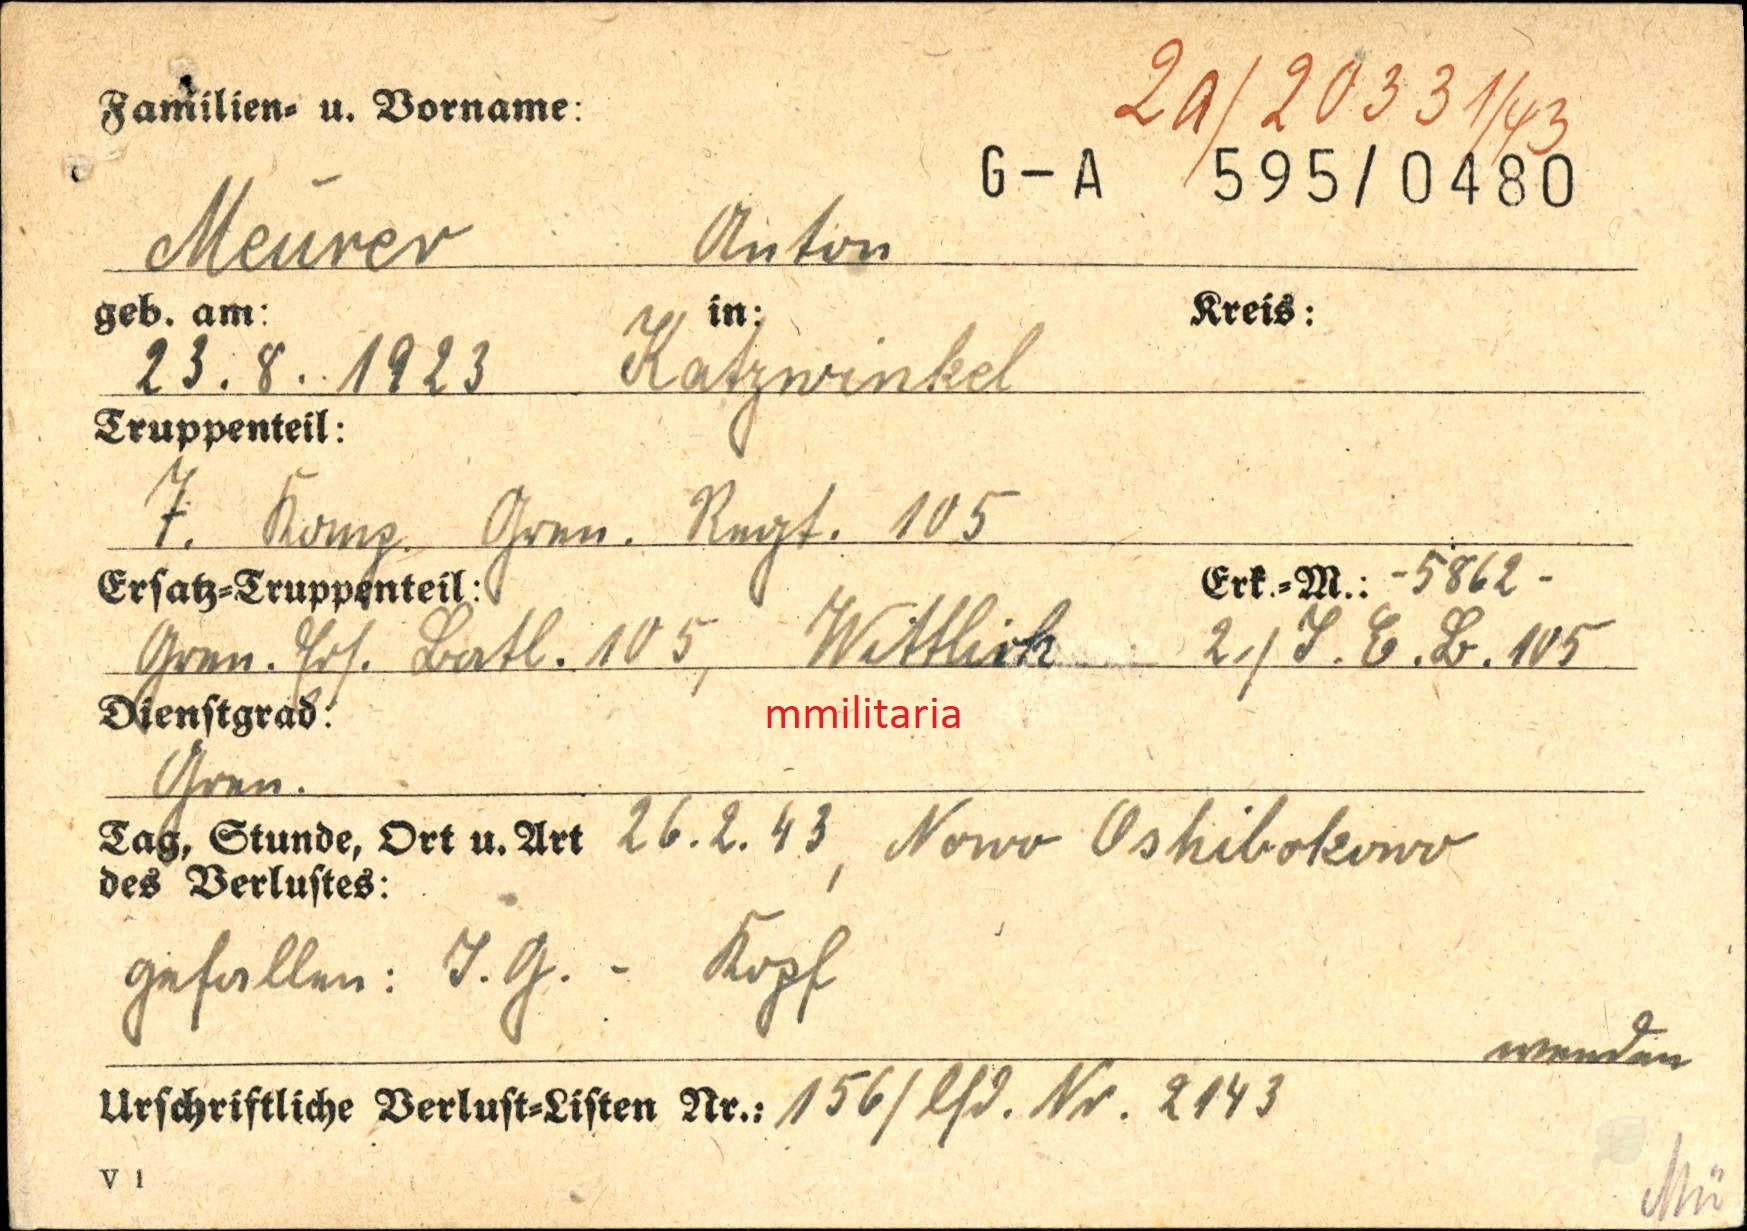 2a/20331/43
Familien- u. Vorname:
G-A 595/0480
Meurer Anton
geb. am: in: Kreis:
23.8.1923 Katzwinkel
Truppenteil:
7. Komp. Gren. Regt. 105
Ersatz-Truppenteil: Erk.-M.: -5862-
Gren. Ers. Batl. 105, Wittlich 2./J.E.B. 105
Dienstgrad:
mmilitaria
Gren.
Tag, Stunde, Ort u. Art 26.2.43, Nowo Oshibokowo
des Verlustes:
gefallen: J.G. - Kopf
wenden
Urschriftliche Verlust-Listen Nr.: 156/lfd. Nr. 2143
V 1
Mü